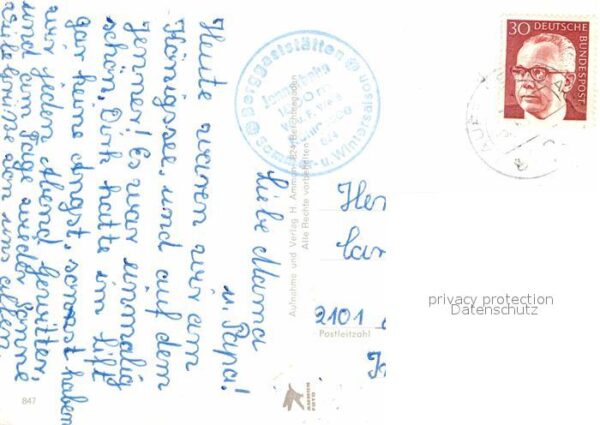 Liebe Mama
u. Papa!
Heute waren wir am
Königssee, und auf dem
Jenner! Es war einmalig
schön. Dirk hatte im Lift
gar keine Angst, sonst haben
wir jeden Abend Gewitter,
und am Tage wieder Sonne
von uns allen
Berggaststätten
Jennerbahn
Sommer- u. Wintersaison
Aufnahme und Verlag H. Ammon 824 Berchtesgaden
Alle Rechte vorbehalten
30 DEUTSCHE
BUNDESPOST
2101
Postleitzahl
privacy protection
Datenschutz
AMMON
FOTO
847